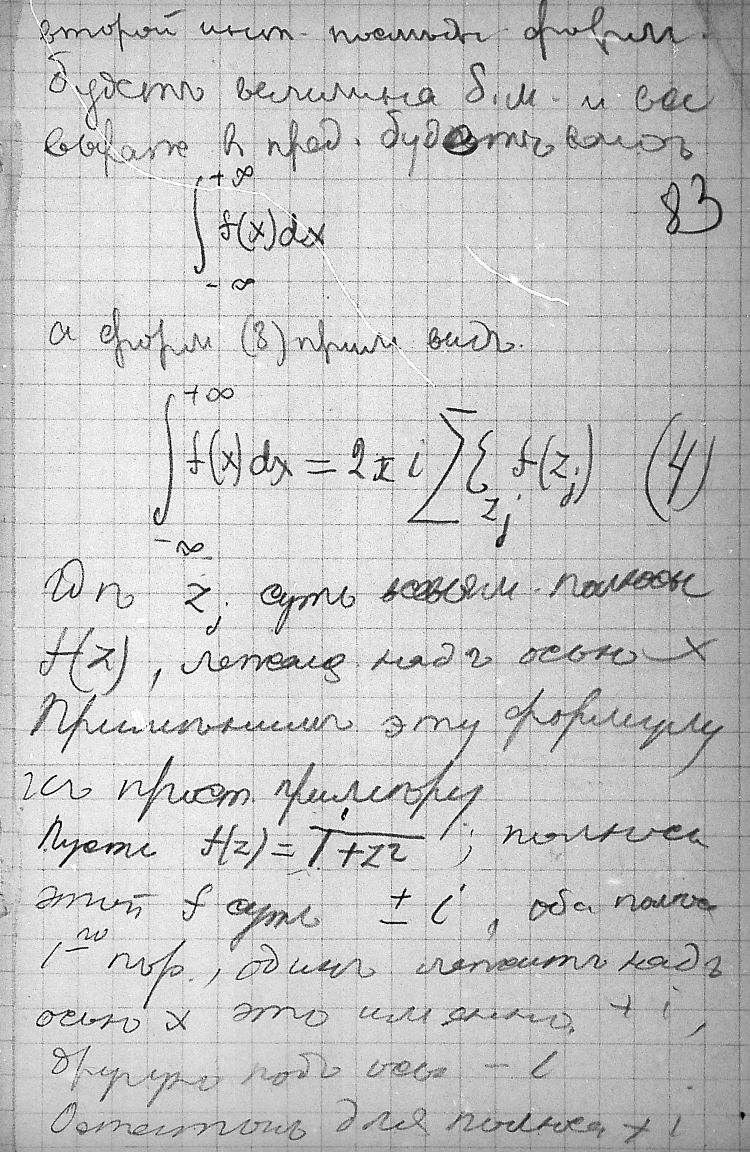 второй инт. послѣдн. форм.
будетъ величина б.м. и все
выраж. въ пред. будетъ
+∞
∫ f(x)dx
-∞
83
а форм (3) прим видъ.
+∞
∫ f(x)dx = 2πi ∑ ξ f(z_j) (4)
-∞ z_j
Гдѣ z_j суть полюсы
f(z), лежащ. надъ осью x
Примѣнимъ эту формулу
къ прост. примѣру
Пусть f(z) = 1/(1+z²) ; полюса
этой f суть ± i, оба полюса
1-го пор., одинъ лежитъ надъ
осью x это именно +i,
другой подъ осью - i
Остатокъ для полюса + i